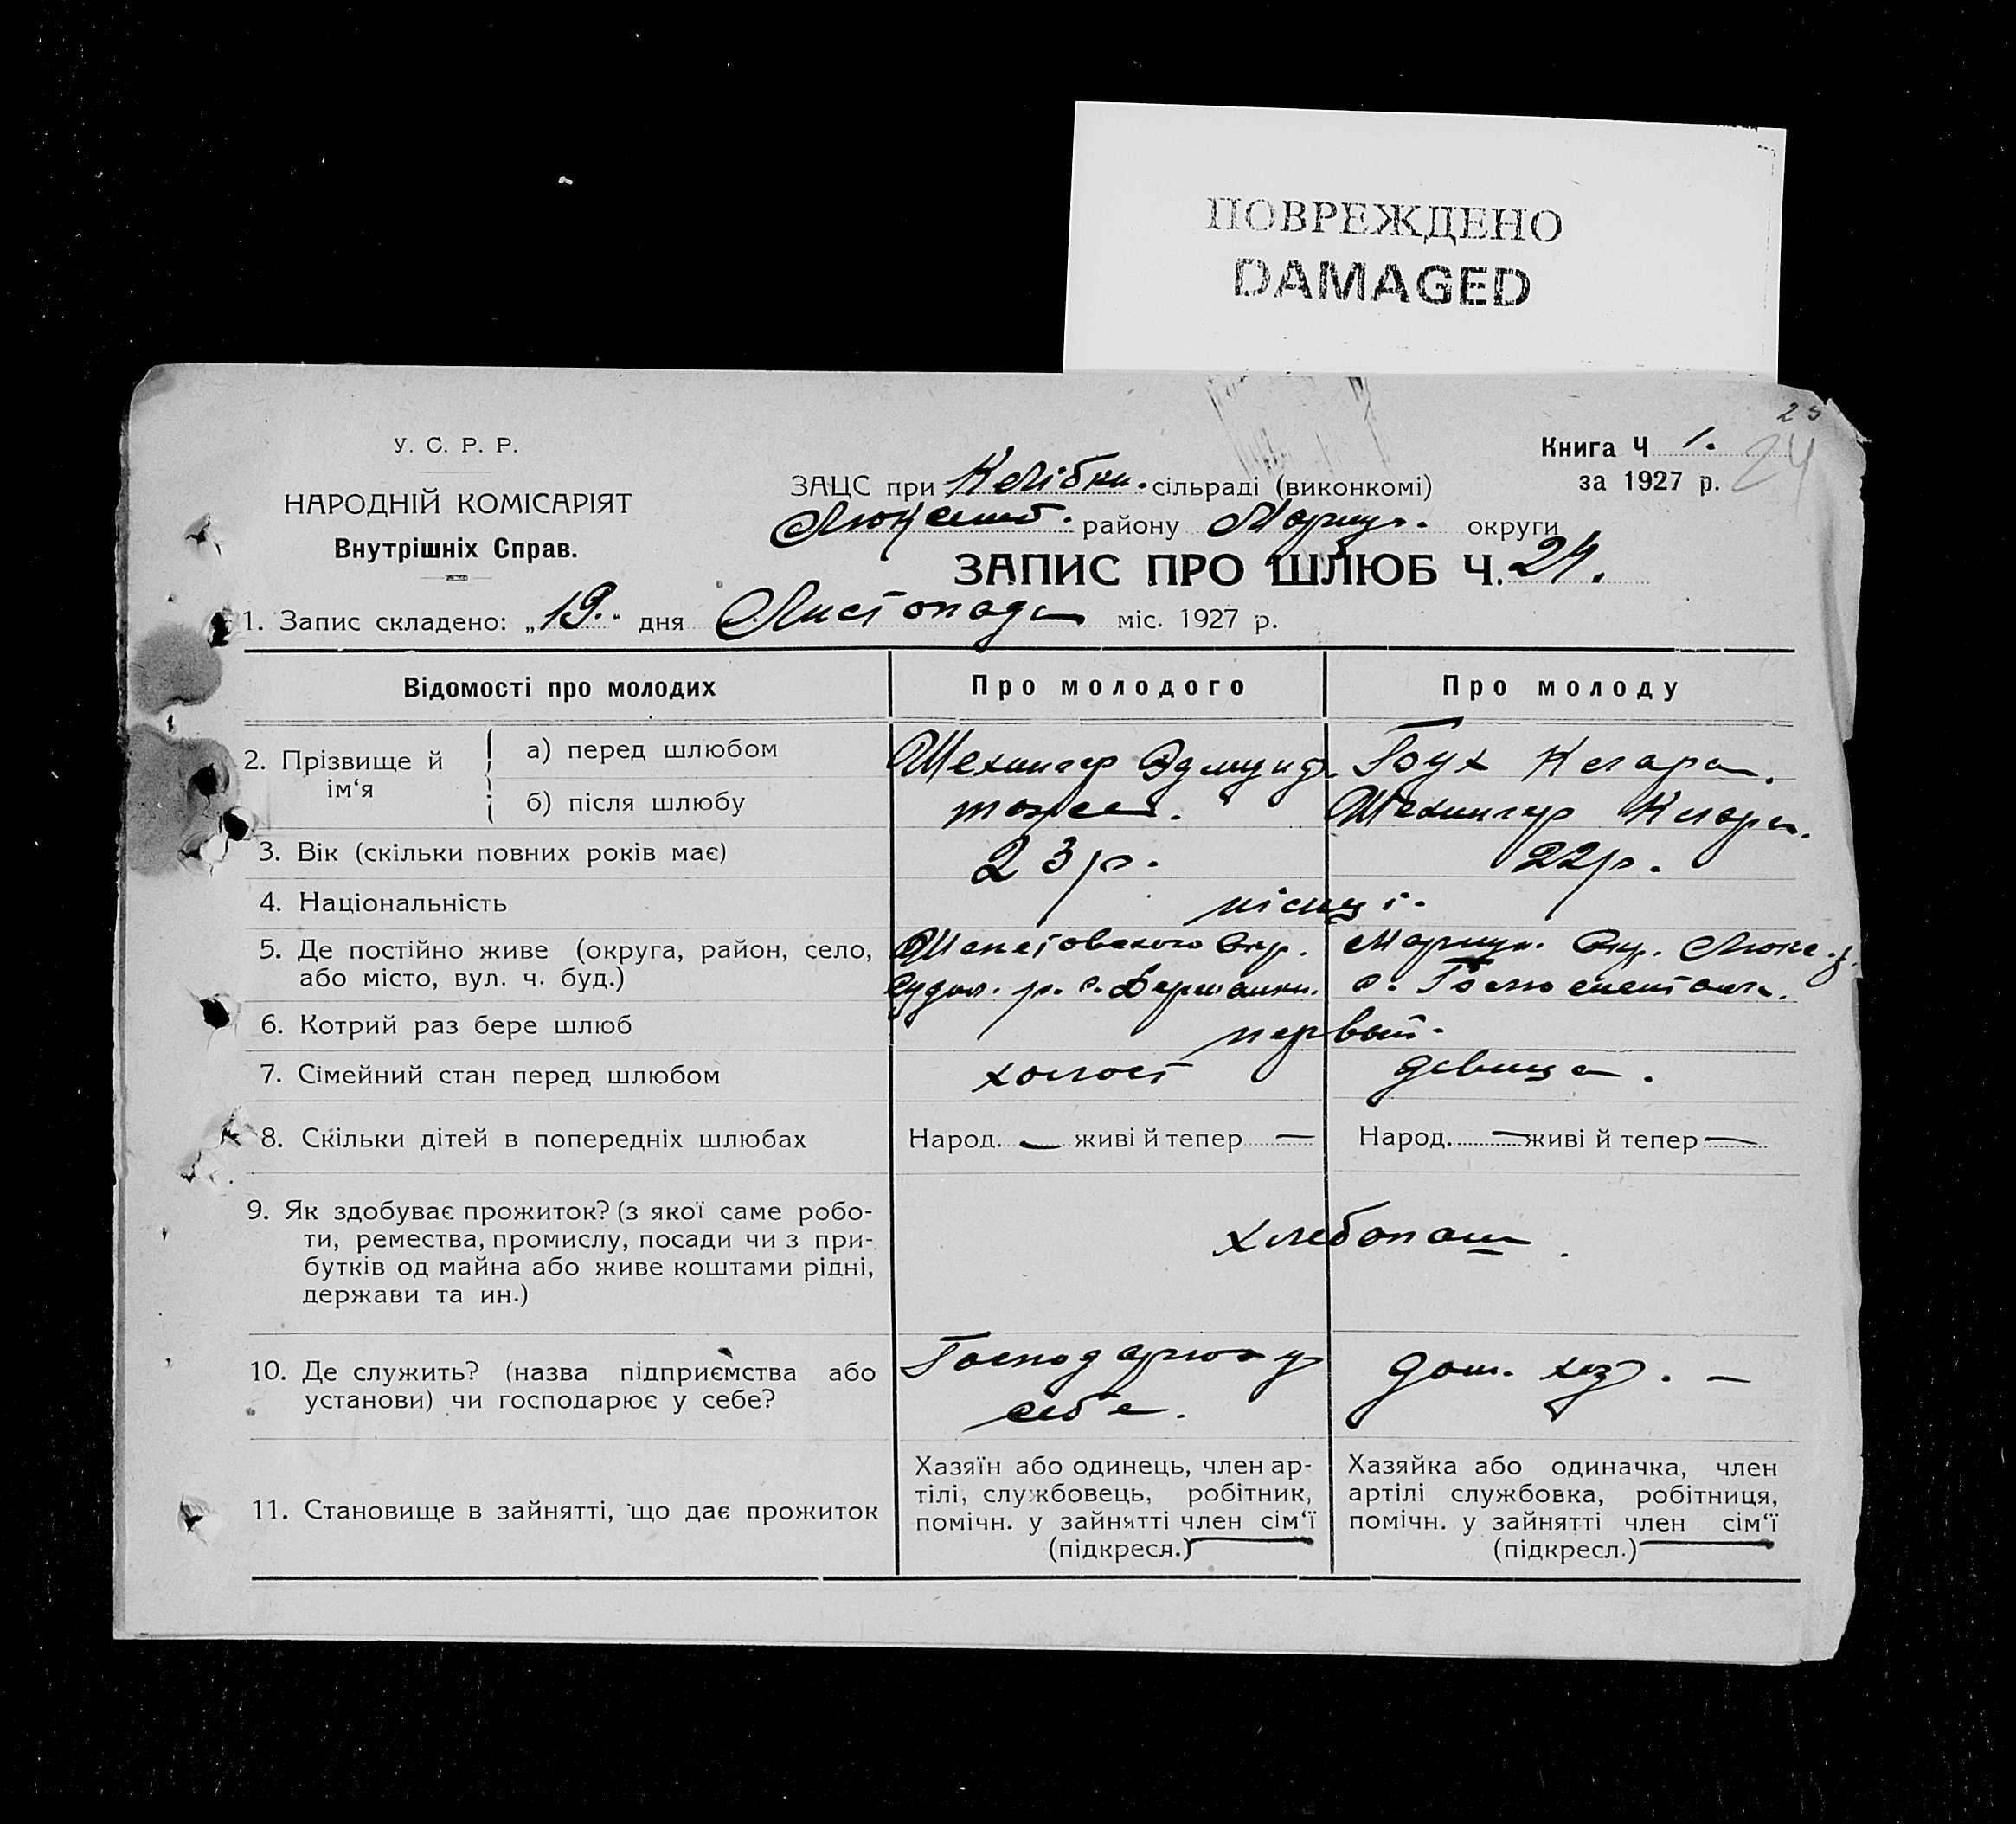 ПОВРЕЖДЕНО
DAMAGED
У. С. Р. Р.
НАРОДНІЙ КОМІСАРІЯТ
Внутрішніх Справ.
Книга Ч 1.
за 1927 р.
24
ЗАЦС при Келібкн. сільраді (виконкомі)
Люксемб. району Маріуп. округи
ЗАПИС ПРО ШЛЮБ Ч. 24.
1. Запис складено: „19." дня Листопада міс. 1927 р.
Відомості про молодих Про молодого Про молоду
2. Прізвище й ім‘я
а) перед шлюбом Шехингер Эдмунд. Бух Клара.
б) після шлюбу тоже. Шехингер Клара.
3. Вік (скільки повних років має) 23 р. 22 р.
4. Національність німці.
5. Де постійно живе (округа, район, село, Шепетовского Окр. Мариуп. Окр. Люкс. р.
або місто, вул. ч. буд.) р. с. с.
6. Котрий раз бере шлюб первый.
7. Сімейний стан перед шлюбом холост девица.
8. Скільки дітей в попередніх шлюбах Народ. — живі й тепер — Народ. — живі й тепер —
9. Як здобуває прожиток? (з якої саме робо-
ти, ремества, промислу, посади чи з при-
бутків од майна або живе коштами рідні,
держави та ин.)
хлебопаш.
10. Де служить? (назва підприємства або
установи) чи господарює у себе?
Господарює у
себе.
дом. хоз. —
11. Становище в зайнятті, що дає прожиток
Хазяїн або одинець, член ар-
тілі, службовець, робітник,
помічн. у зайнятті член сім‘ї
(підкресл.)
Хазяйка або одиначка, член
артілі службовка, робітниця,
помічн. у зайнятті член сім‘ї
(підкресл.)